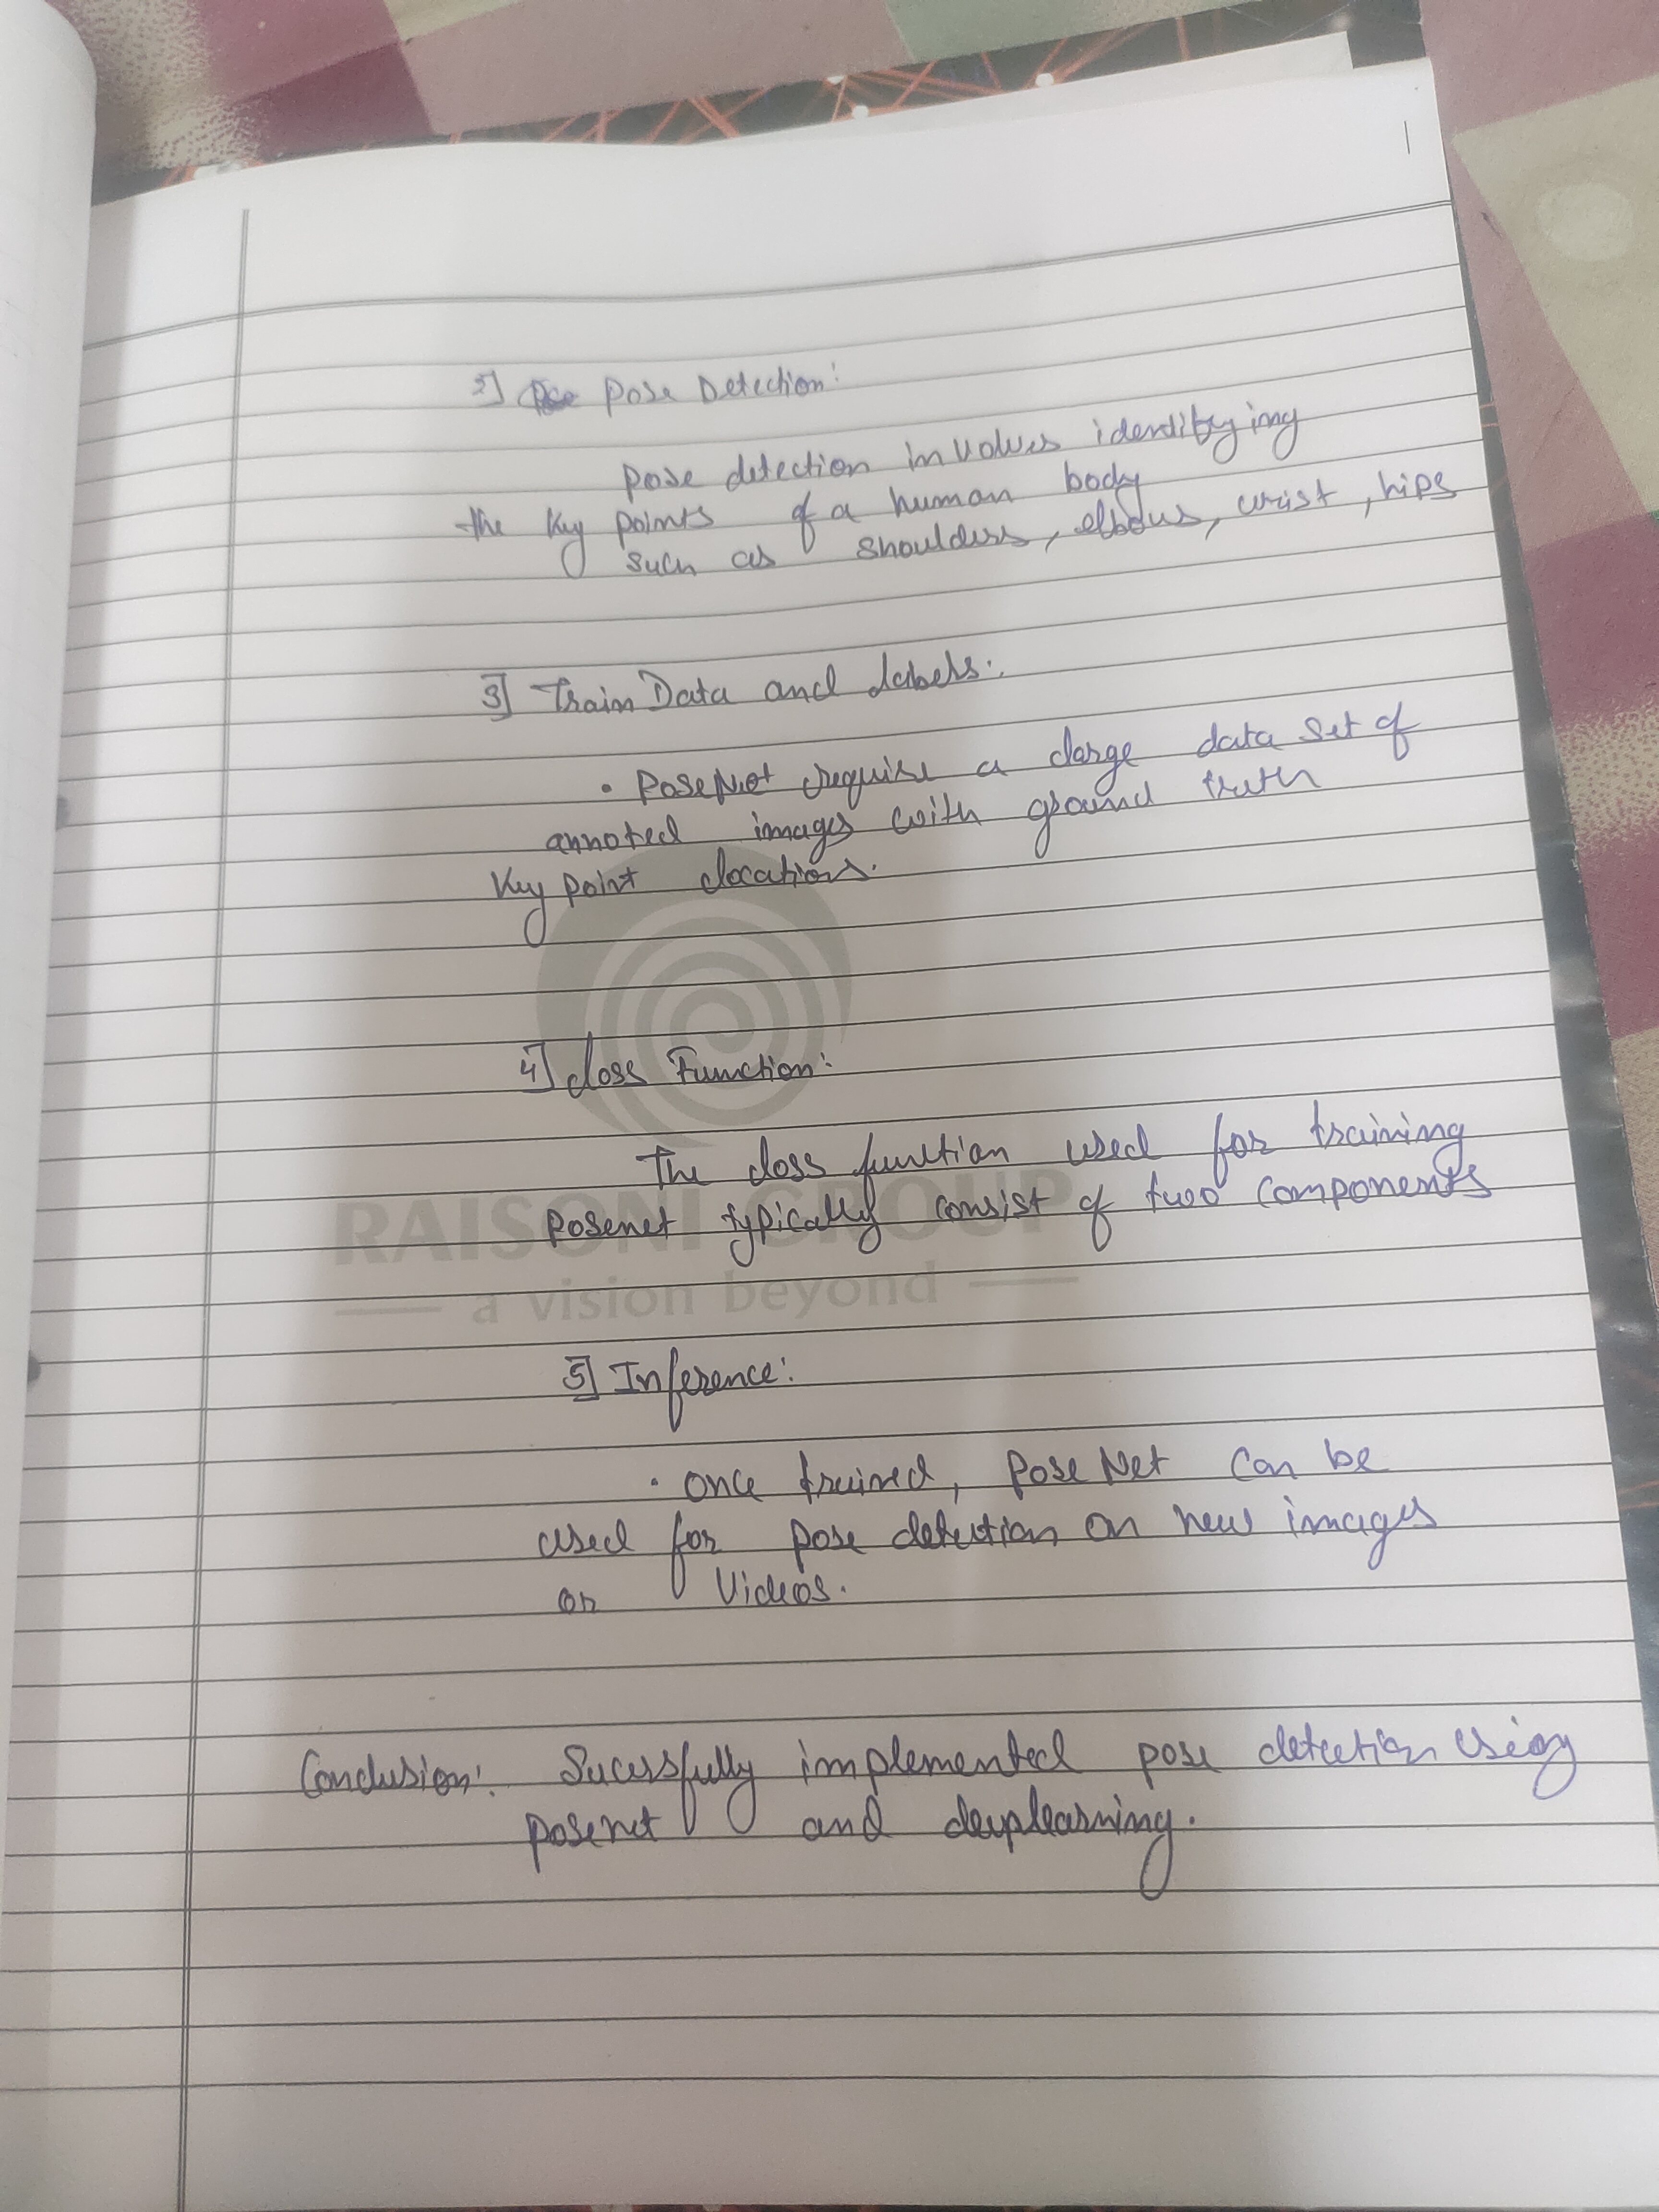 2] Pose Detection:
Pose detection involves identifying
the key points of a human body
such as shoulders, elbows, wrist, hips
3] Train Data and Labels:
• PoseNet require a large data set of
annoted images with ground truth
Key point locations.
4] Loss Function:
The loss function used for training
posenet typically consist of two components
RAISONI GROUP
a vision beyond
5] Inference:
• once trained, PoseNet can be
used for pose detection on new images
or Videos.
Conclusion: Sucessfully implemented pose detection using
posenet and deeplearning.